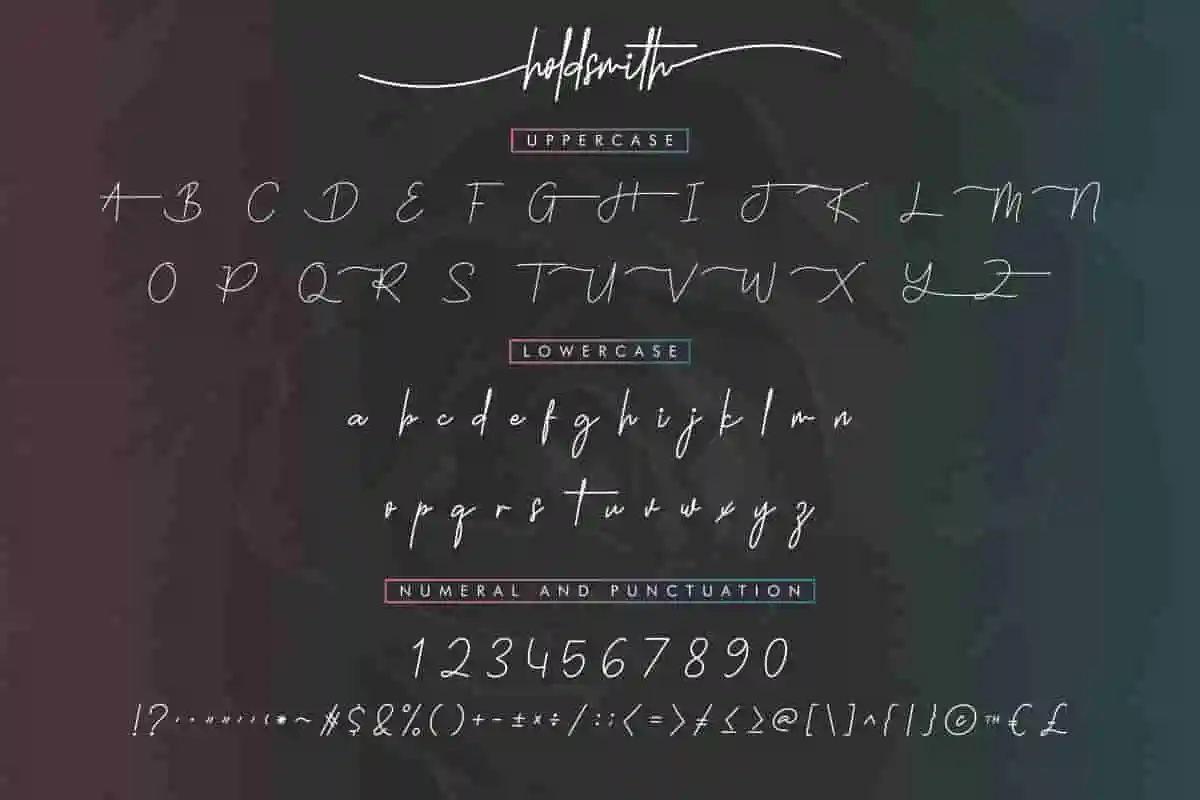 holdsmith
UPPERCASE
A B C D E F G H I J K L M N
O P Q R S T U V W X Y Z
LOWERCASE
a b c d e f g h i j k l m n
o p q r s t u v w x y z
NUMERAL AND PUNCTUATION
1 2 3 4 5 6 7 8 9 0
! ? * ~ # $ & % ( ) + - ± × ÷ / : ; < = > ≠ ≤ ≥ @ [ \ ] ^ { | } © ™ € £